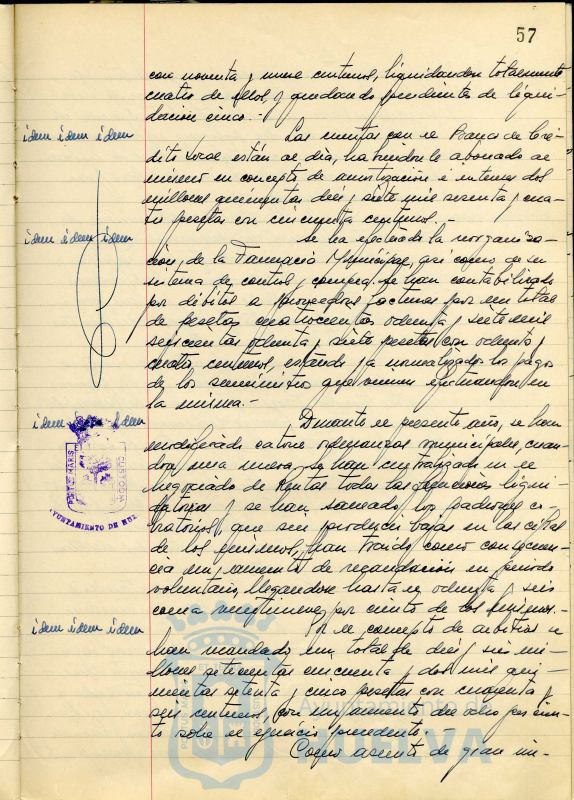 57
con noventa y nueve centimos, liquidandose totalmente
cuatro de ellos, y quedando pendientes de liqui-
dacion cinco.-
idem idem idem
Las cuentas con el Banco de Cré-
dito Local están al día, habiendosele abonado al
mismo en concepto de amortización é intereses dos
millones quinientas diez y siete mil sesenta y cua-
tro pesetas con cincuenta centimos.-
idem idem idem
Se ha efectuado la reorganiza-
ción, de la Farmacia Municipal, así como de su
sistema de control y compra. Se han contabilizado
por débitos a proveedores facturas por un total
de pesetas cuatrocientas ochenta y siete mil
seiscientas ochenta y siete pesetas con ochenta y
cuatro centimos, estando ya normalizados los pagos
de los suministros que vienen efectuandose en
la misma.-
idem idem idem
Durante el presente año, se han
modificado catorce ordenanzas municipales, crean-
dose una nueva, se han centralizado en el
Negociado de Rentas todas las liqui-
datorias y se han saneado los padrones co-
bratorios, que sin producir bajas en las cifras
de los mismos, han traido como consecuen-
cia un aumento de recaudación en periodo
voluntario, llegandose hasta el ochenta y seis
coma por ciento de los mismos.-
PORTUS MARIS
CUSTODIA
AYUNTAMIENTO DE HUE
idem idem idem
Por el concepto de arbitrios se
han recaudado un total de diez y seis mi-
llones setecientas cincuenta y dos mil qui-
nientas setenta y cinco pesetas con cincuenta y
seis centimos, con un aumento del ocho por cien-
to sobre el ejercicio precedente.
Como asunto de gran im-
Ayuntamiento de
HUELVA